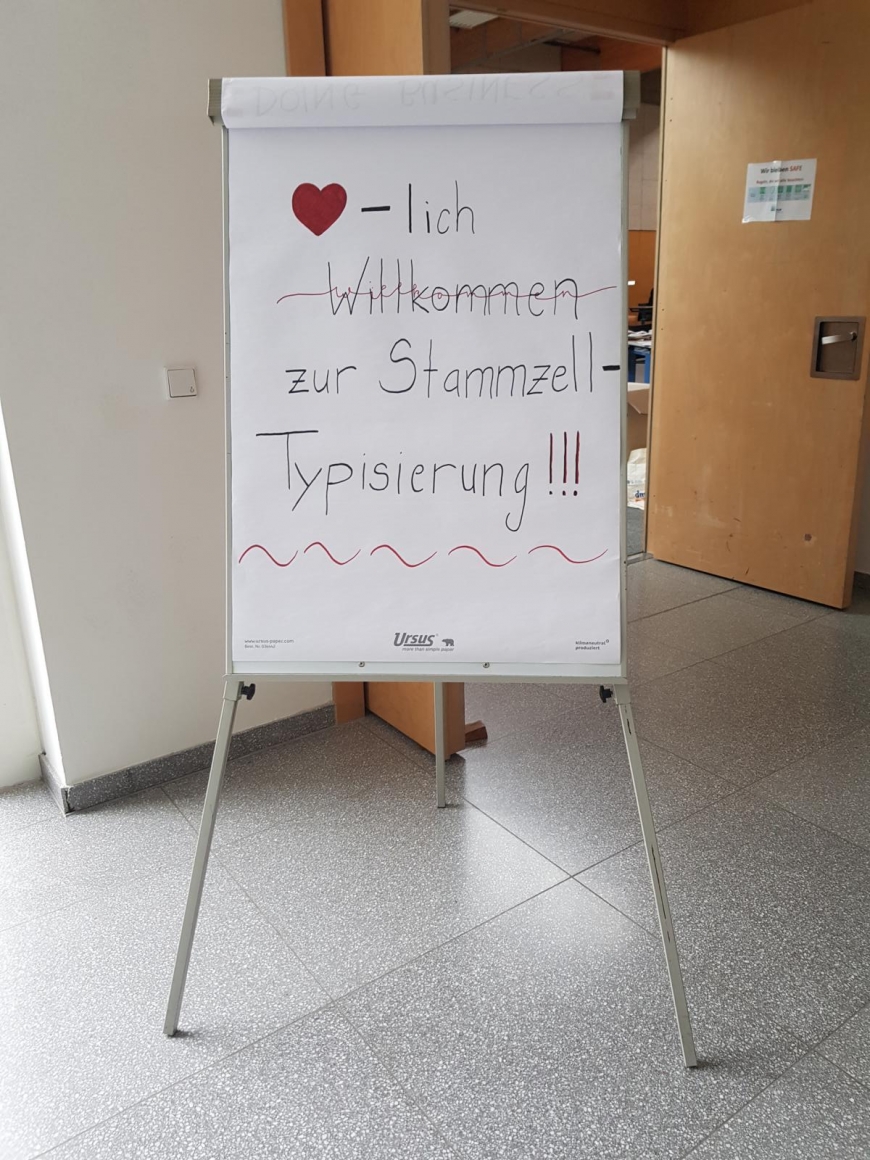 DOING BUSINESS
❤-lich
Willkommen
zur Stammzell-
Typisierung !!!
www.ursus-paper.com
Ursus
more than simple paper
klimaneutral
produziert
Wir bleiben SAFE